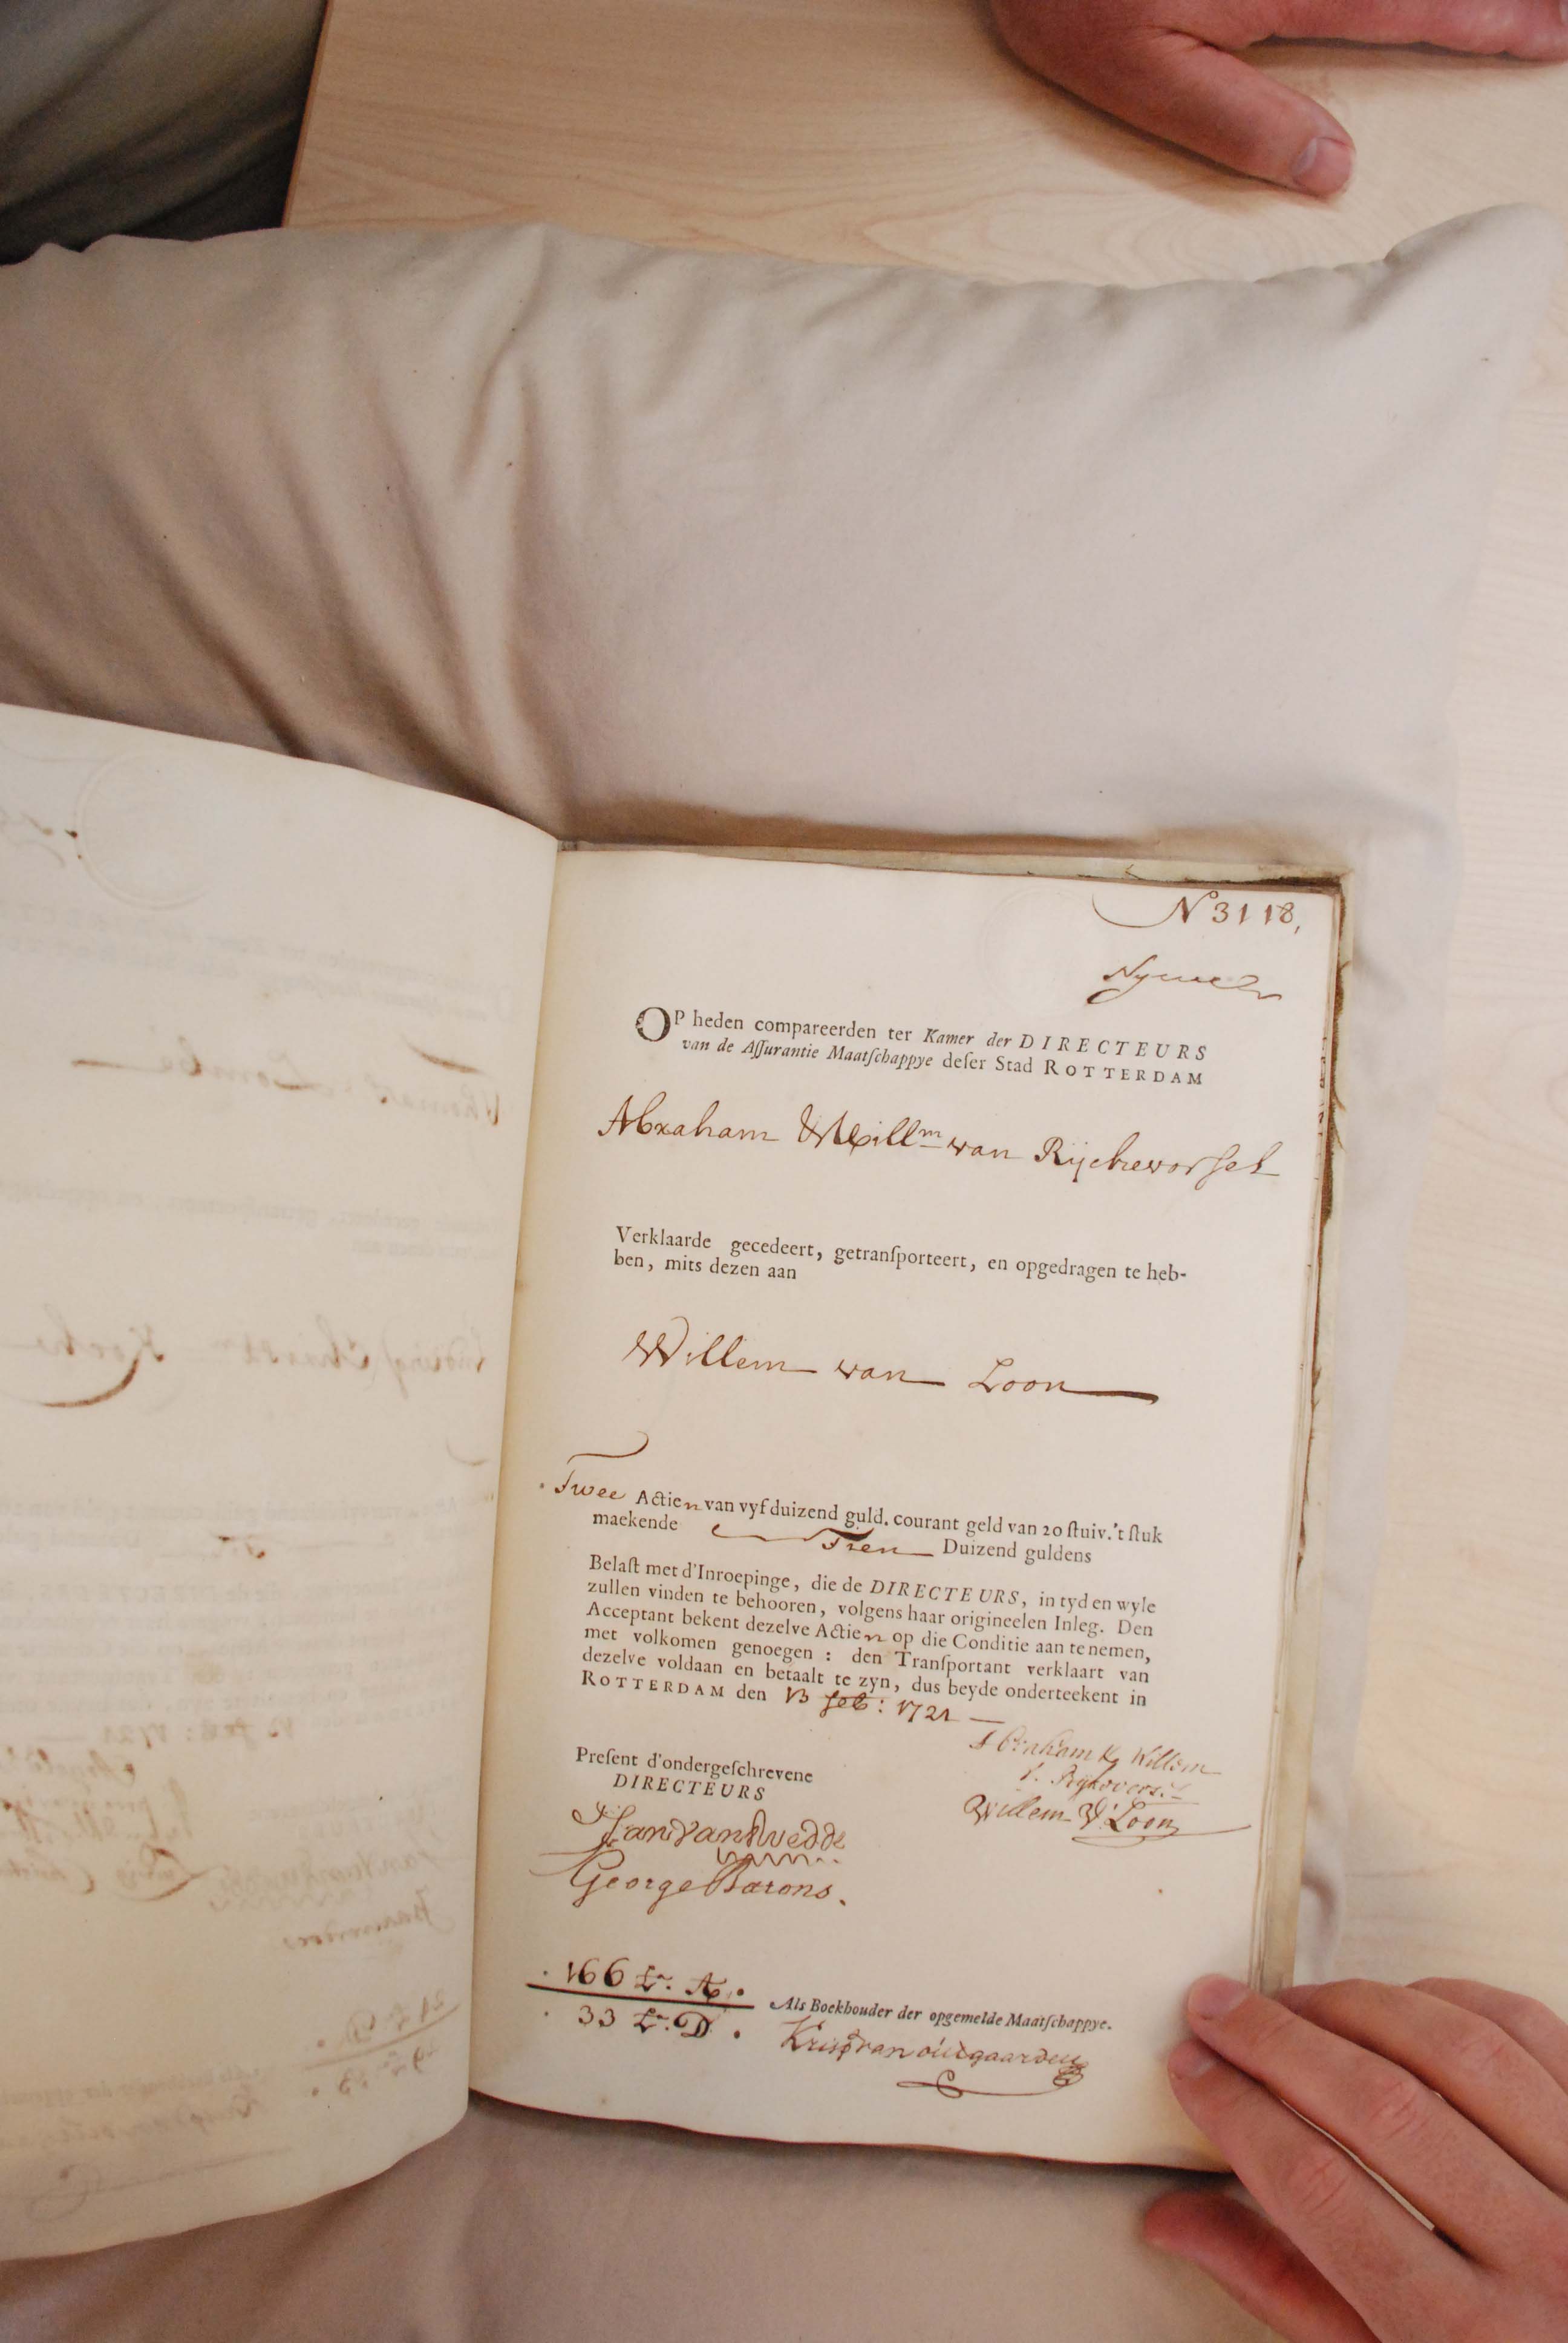 N 3118,
OP heden compareerden ter Kamer der DIRECTEURS
van de Aſſurantie Maatſchappye deſer Stad ROTTERDAM
Abraham Will^m van Rijckevorsel
Verklaarde gecedeert, getranſporteert, en opgedragen te heb-
ben, mits dezen aan
Willem van Loon
Twee Actien van vyf duizend guld. courant geld van 20 ſtuiv. 't ſtuk
maekende Tien Duizend guldens
Belaſt met d'Inroepinge, die de DIRECTEURS, in tyd en wyle
zullen vinden te behooren, volgens haar origineelen Inleg. Den
Acceptant bekent dezelve Actien op die Conditie aan te nemen,
met volkomen genoegen : den Tranſportant verklaart van
dezelve voldaan en betaalt te zyn, dus beyde onderteekent in
ROTTERDAM den 13 feb : 1721
Abraham Willem
Willem V. Loon
Preſent d'ondergeſchrevene
DIRECTEURS
George Barons.
166 Lr. A.
33 Lr. D.
Als Boekhouder der opgemelde Maatſchappye.